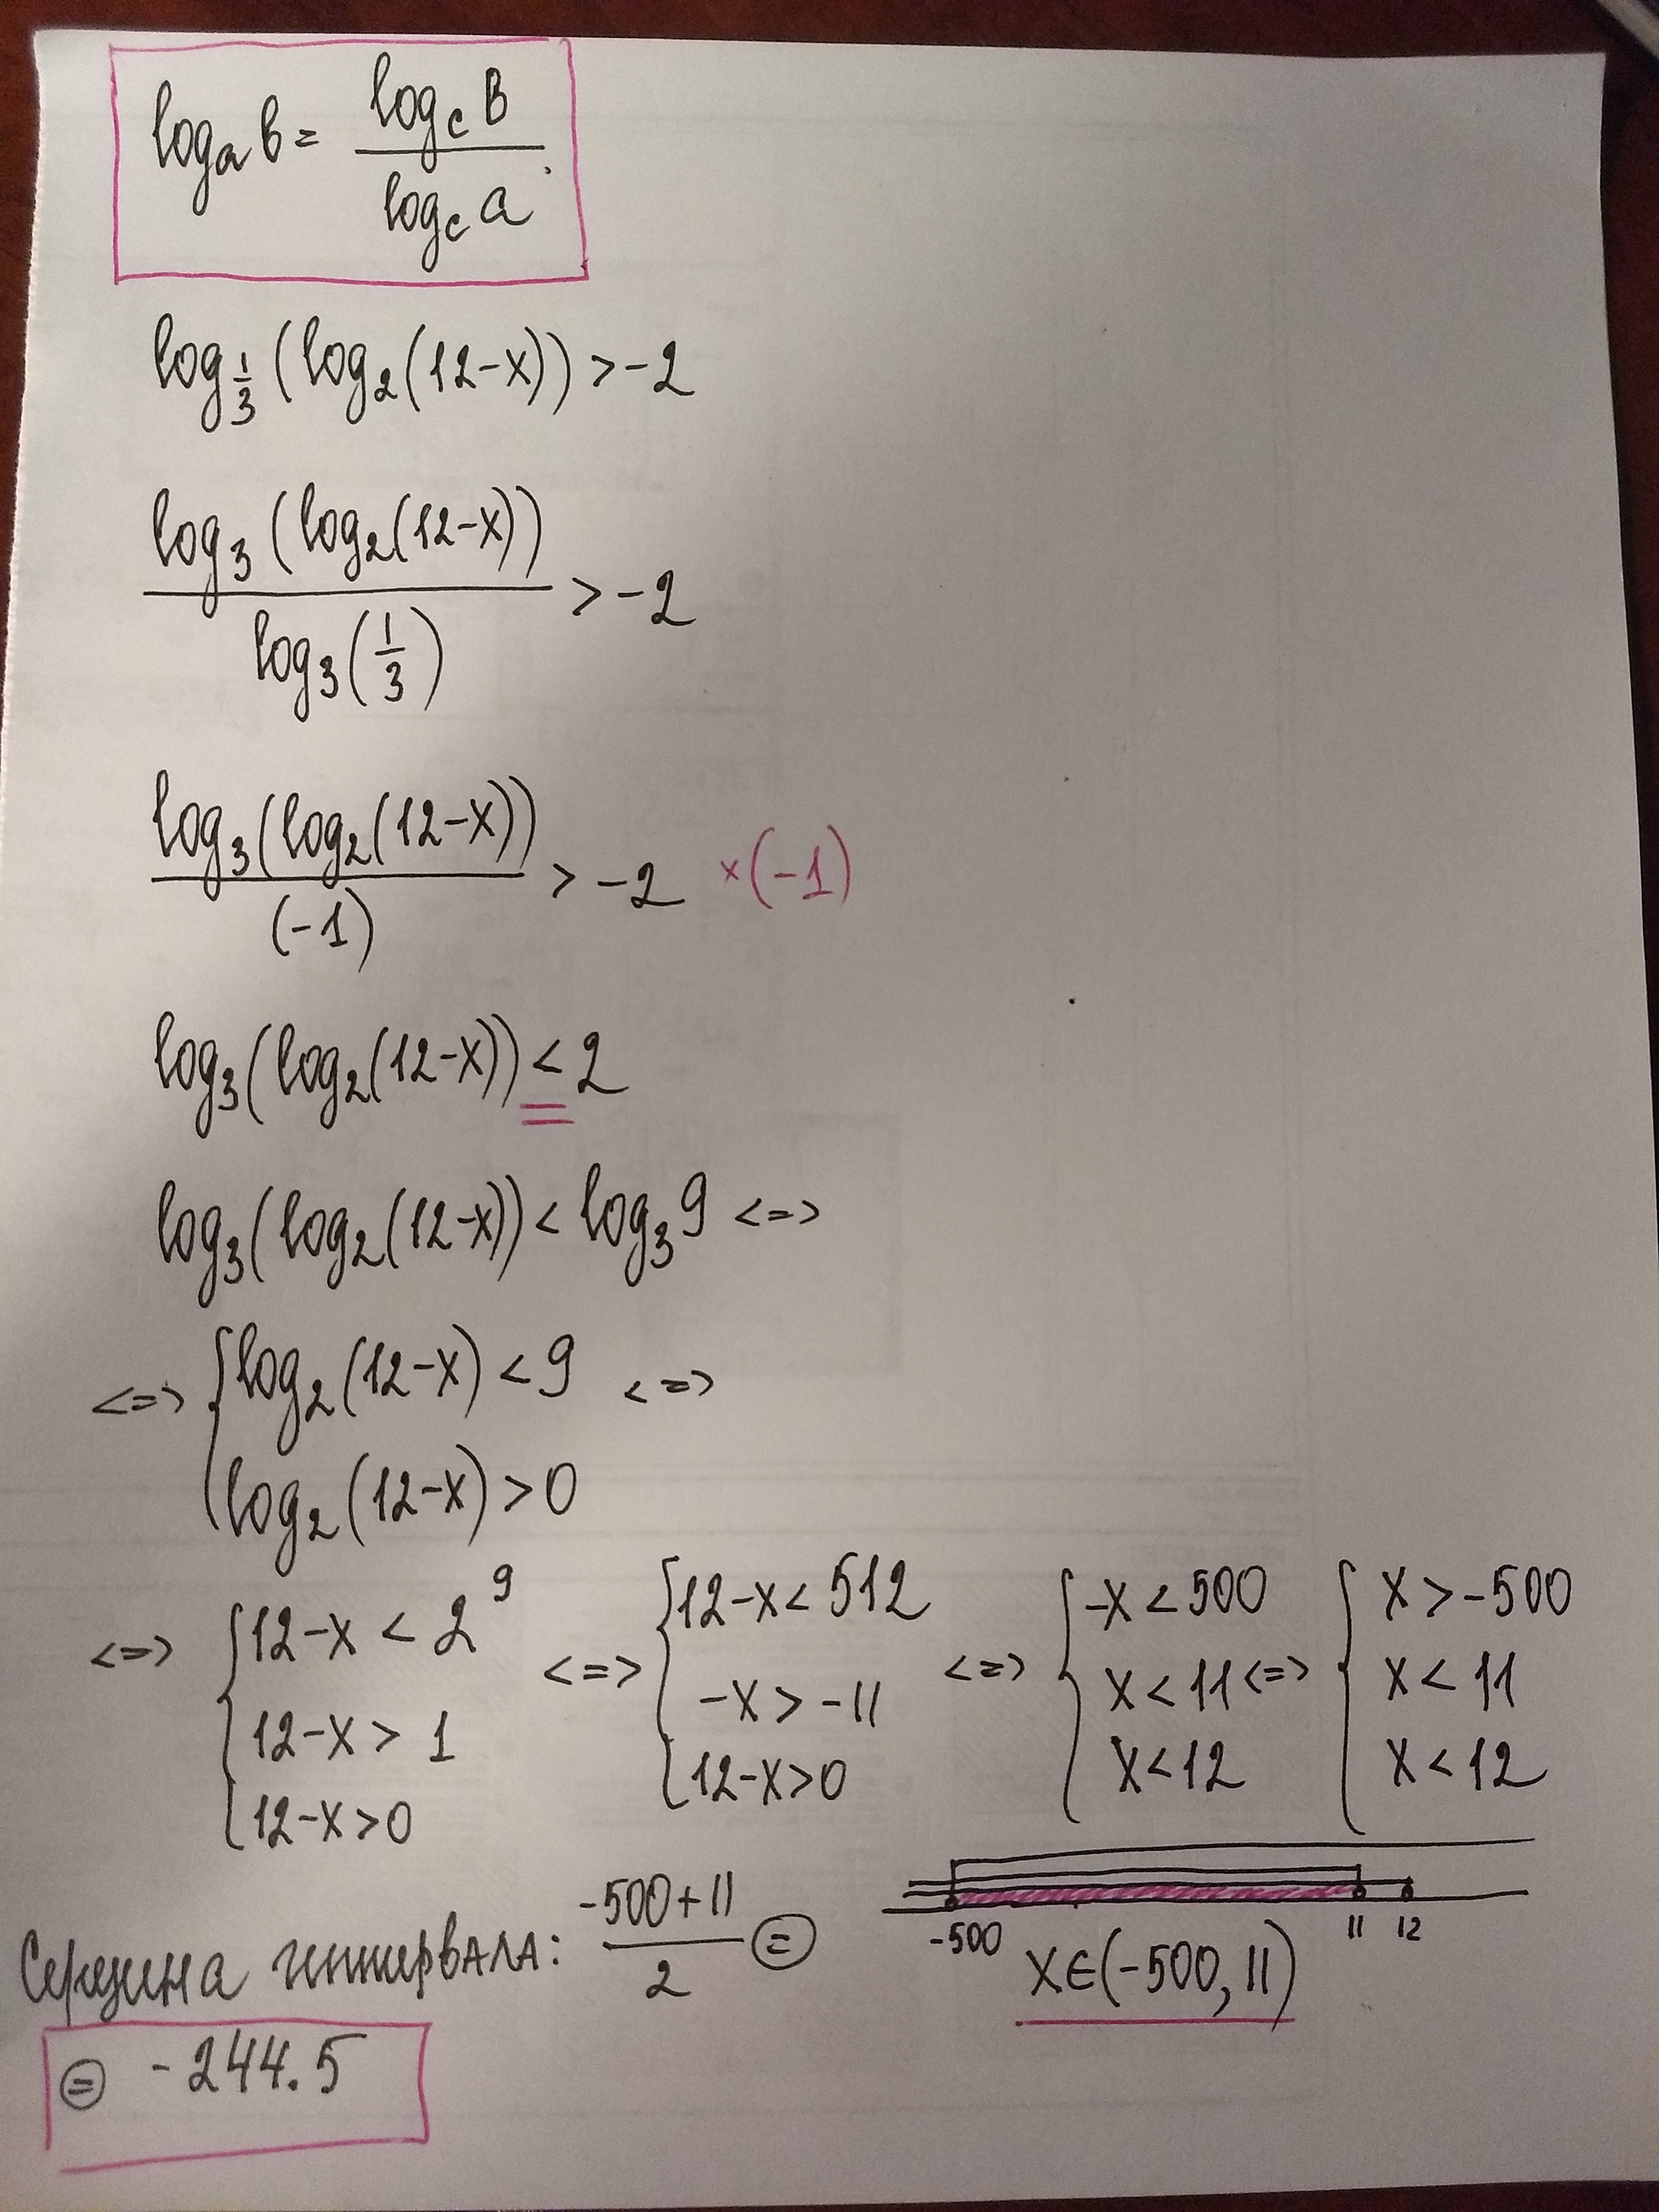 logₐ b = log_c b / log_c a
log_{1/3} (log₂(12-x)) > -2
log₃ (log₂(12-x)) / log₃ (1/3) > -2
log₃(log₂(12-x)) / (-1) > -2 ×(-1)
log₃(log₂(12-x)) < 2
log₃(log₂(12-x)) < log₃ 9 <=>
<=> { log₂(12-x) < 9 <=>
log₂(12-x) > 0
<=> { 12-x < 2⁹ <=> { 12-x < 512 <=> { -x < 500 <=> { x > -500
12-x > 1 -x > -11 x < 11 x < 11
12-x > 0 12-x > 0 x < 12 x < 12
-500 11 12
Середина интервала: (-500+11) / 2 = x∈(-500, 11)
= -244.5